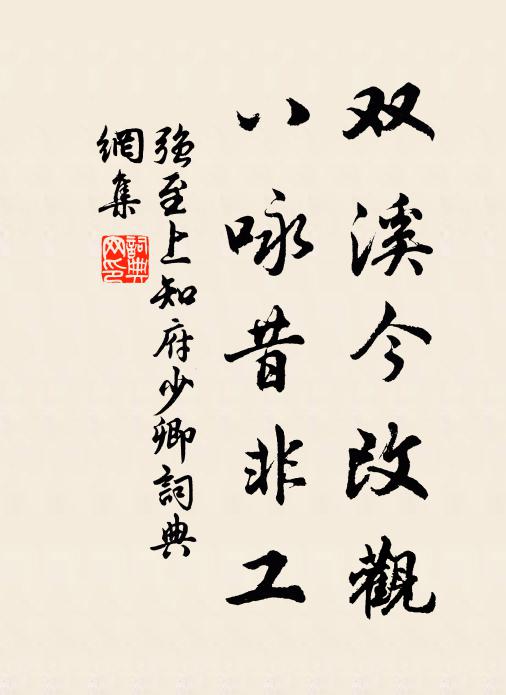 双溪今改觀
八咏昔非工
强至上知府少卿詞典
網集
詞典网印